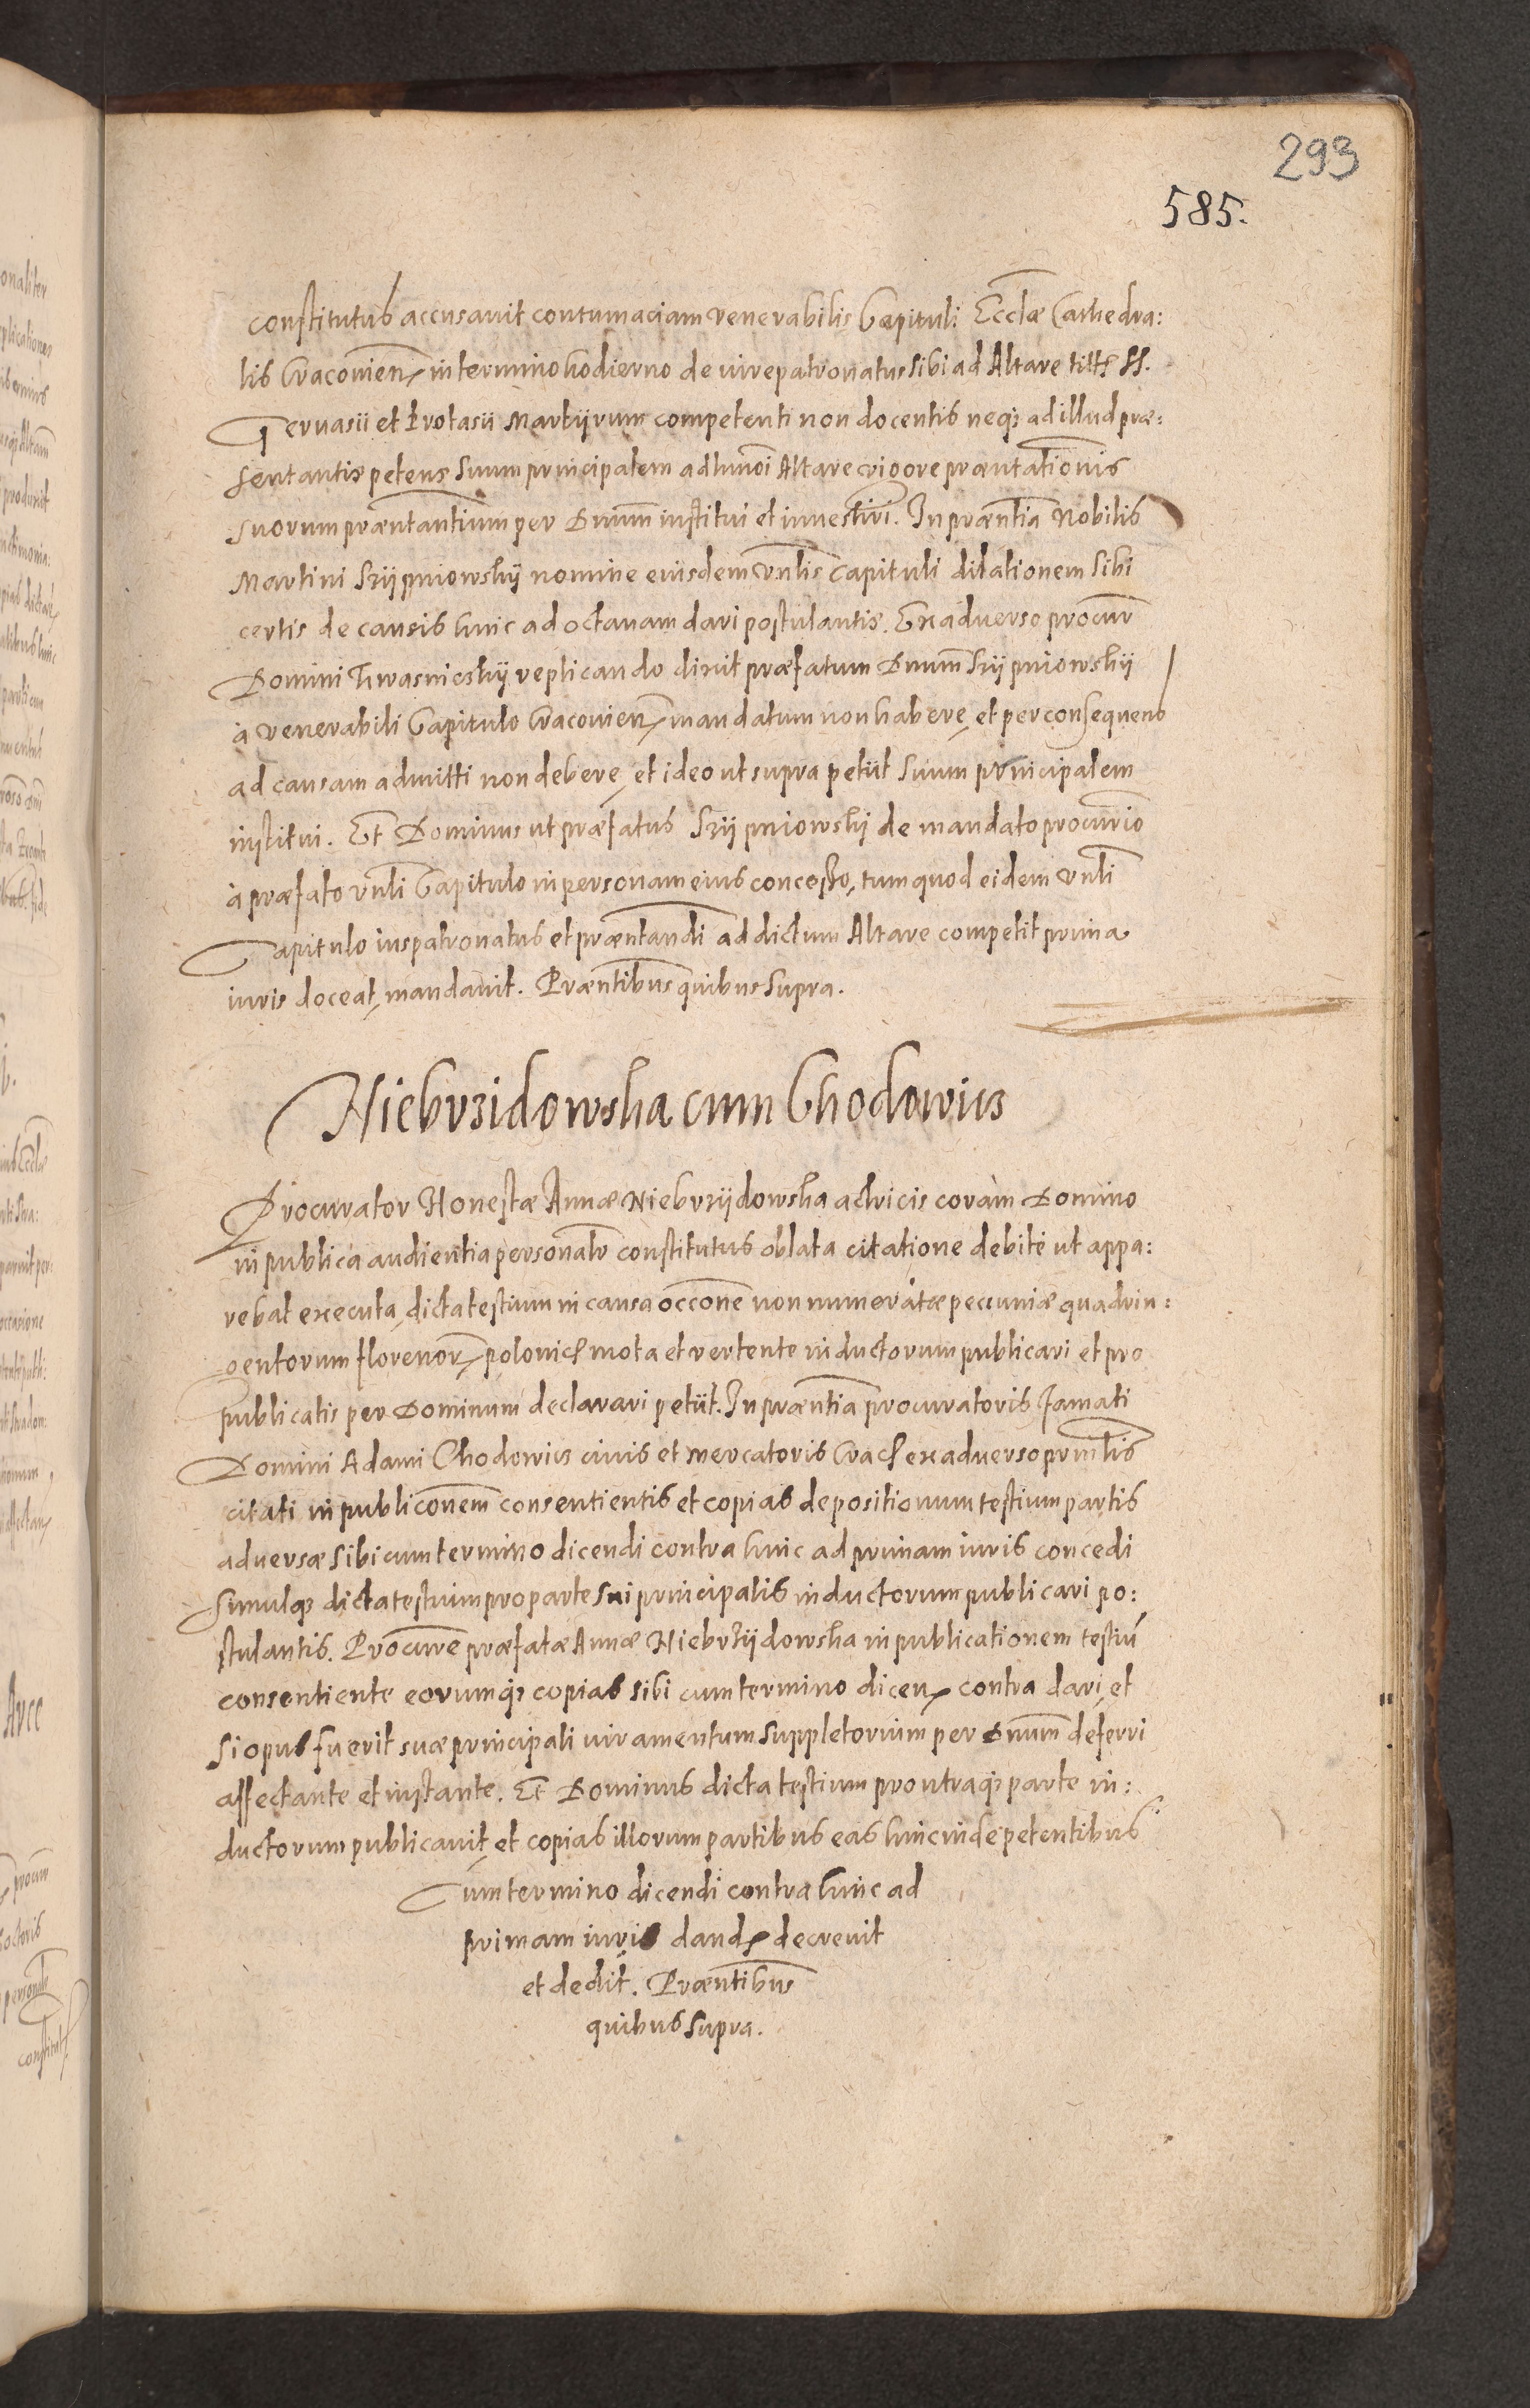 293
585.
constitutus accusavit contumaciam venerabilis Capituli Ecclæ Cathedra:
lis Cracovien in termino hodierno de iure patronatus sibi ad Altare titt SS.
Gervasii et Protasii Martijrum competenti non docentis neq3 ad illud præ:
sentantis petens suum principalem ad hmoi Altare vigore præntationis
suorum præntantium per Dnum institui et investiri. In præntia Nobilis
Martini Srijpniowskij nomine eiusdem Vnlis Capituli dilationem sibi
certis de causis huic ad octavam dari postulantis. Ex adverso procur
Domini Kwasnicskij replicando dixit præfatum Dnum Srijpniowskij
à venerabili Capitulo Cracovien mandatum non habere, et per consequens
ad causam admitti non debere, et ideo ut supra petiit suum principalem
institui. Et Dominus ut præfatus Srijpniowskij de mandato procurio
à præfato Vnli Capitulo in personam eius concesso, tum quod eidem Vnli
Capitulo ius patronatus et præntandi ad dictum Altare competit prima
iuris doceat, mandavit. Præntibus quibus supra.
Niebrzidowska cum Chodowicz
Procurator Honestæ Annæ Niebrzijdowska actricis coram Domino
in publica audientia personalr constitutus oblata citatione debite ut appa:
rebat executa, dicta testium in causa occone non numeratæ pecuniæ quadrin:
gentorum florenor polonic mota et vertente inductorum publicari et pro
publicatis per Dominum declarari petiit. In præntia procuratoris Famati
Domini Adami Chodowicz civis et mercatoris Crac ex adverso prinlis
citati in publiconem consentientis et copias depositionum testium partis
adversæ sibi cum termino dicendi contra huic ad primam iuris concedi
simulq3 dicta testium pro parte sui principalis inductorum publicari po:
stulantis. Procure præfatæ Annæ Niebrzijdowska in publicationem testiu
consentiente eorumq3 copias sibi cum termino dicen contra dari, et
si opus fuerit suæ principali iuramentum suppletorium per Dnum deferri
affectante et instante. Et Dominus dicta testium pro utraq3 parte in:
ductorum publicavit, et copias illorum partibus eas hincinde petentibus
cum termino dicendi contra huic ad
primam iuris dand decrevit
et dedit. Præntibus
quibus supra.